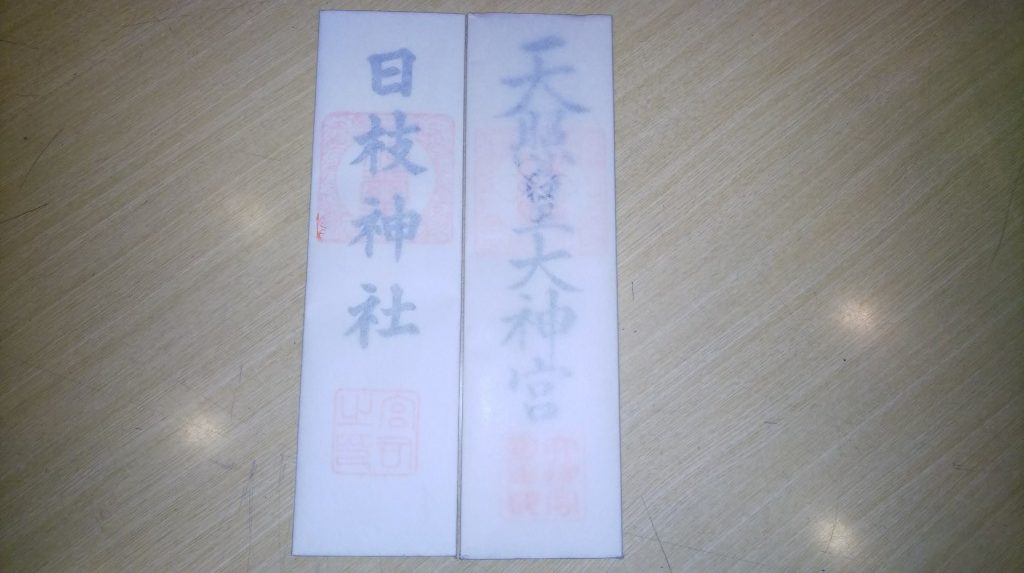 天照皇大神宮
日枝神社
宮司之印